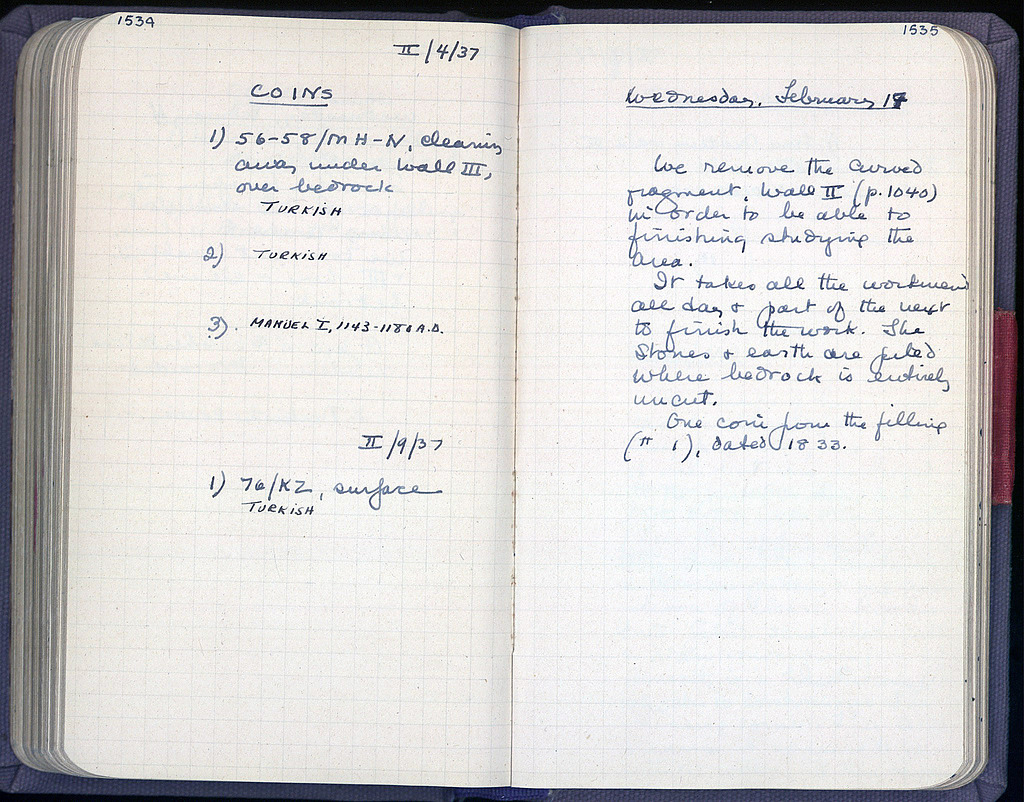 1534
II/4/37
COINS
1) 56-58/MH-N, clearing
away under Wall III,
over bedrock
TURKISH
2) TURKISH
3). MANUEL I, 1143-1180 A.D.
II/9/37
1) 76/KZ, surface
TURKISH
1535
Wednesday, February 17
We remove the curved
fragment, Wall II (p.1040)
in order to be able to
finishing studying the
area.
It takes all the workmen
all day & part of the next
to finish the work. The
stones & earth are piled
where bedrock is entirely
uncut.
One coin from the filling
(# 1), dated 1833.